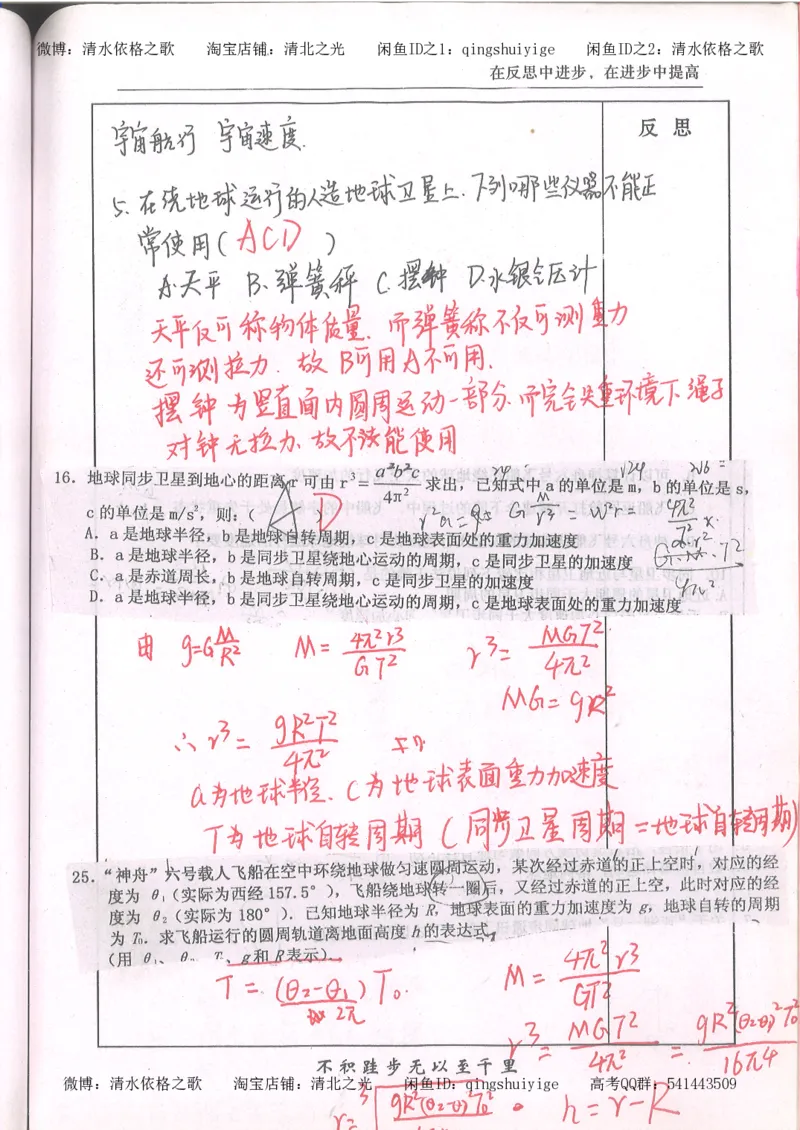 微博：清水依格之歌 淘宝店铺：清北之光 闲鱼ID之1：qingshuiyige 闲鱼ID之2：清水依格之歌
在反思中进步，在进步中提高
反 思
宇宙航行 宇宙速度.
5. 在绕地球运行的人造地球卫星上.下列哪些仪器不能正
常使用( ACD )
A.天平 B.弹簧秤 C.摆钟 D.水银气压计
天平仅可称物体质量.而弹簧称不仅可测重力
还可测拉力.故B可用A不可用.
摆钟为竖直面内圆周运动一部分.而完全失重环境下绳子
对钟无拉力.故不能使用
16. 地球同步卫星到地心的距离 r 可由 r³=a²b²c/4π² 求出，已知式中 a 的单位是 m，b 的单位是 s，
c 的单位是 m/s²，则：( A D )
A．a 是地球半径，b 是地球自转周期，c 是地球表面处的重力加速度
B．a 是地球半径，b 是同步卫星绕地心运动的周期，c 是同步卫星的加速度
C．a 是赤道周长，b 是地球自转周期，c 是同步卫星的加速度
D．a 是地球半径，b 是同步卫星绕地心运动的周期，c 是地球表面处的重力加速度
由 g=G M/R² M= 4π²r³/GT² r³= MGT²/4π²
MG=gR²
∴ r³= gR²T²/4π²
a为地球半径.c为地球表面重力加速度
T为地球自转周期(同步卫星周期=地球自转周期)
25．“神舟”六号载人飞船在空中环绕地球做匀速圆周运动，某次经过赤道的正上空时，对应的经
度为 θ₁(实际为西经 157.5°)，飞船绕地球转一圈后，又经过赤道的正上空，此时对应的经
度为 θ₂(实际为 180°)．已知地球半径为 R，地球表面的重力加速度为 g，地球自转的周期
为 T₀．求飞船运行的圆周轨道离地面高度 h 的表达式．
(用 θ₁、θ₂、T₀、g和 R表示)．
T= (θ₂-θ₁)/2π T₀ M= 4π²r³/GT²
r³= MGT²/4π² = gR²(θ₂-θ₁)²T₀²/16π4
不积跬步无以至千里
微博：清水依格之歌 淘宝店铺：清北之光 闲鱼ID：qingshuiyige 高考QQ群：541443509
h=r-R